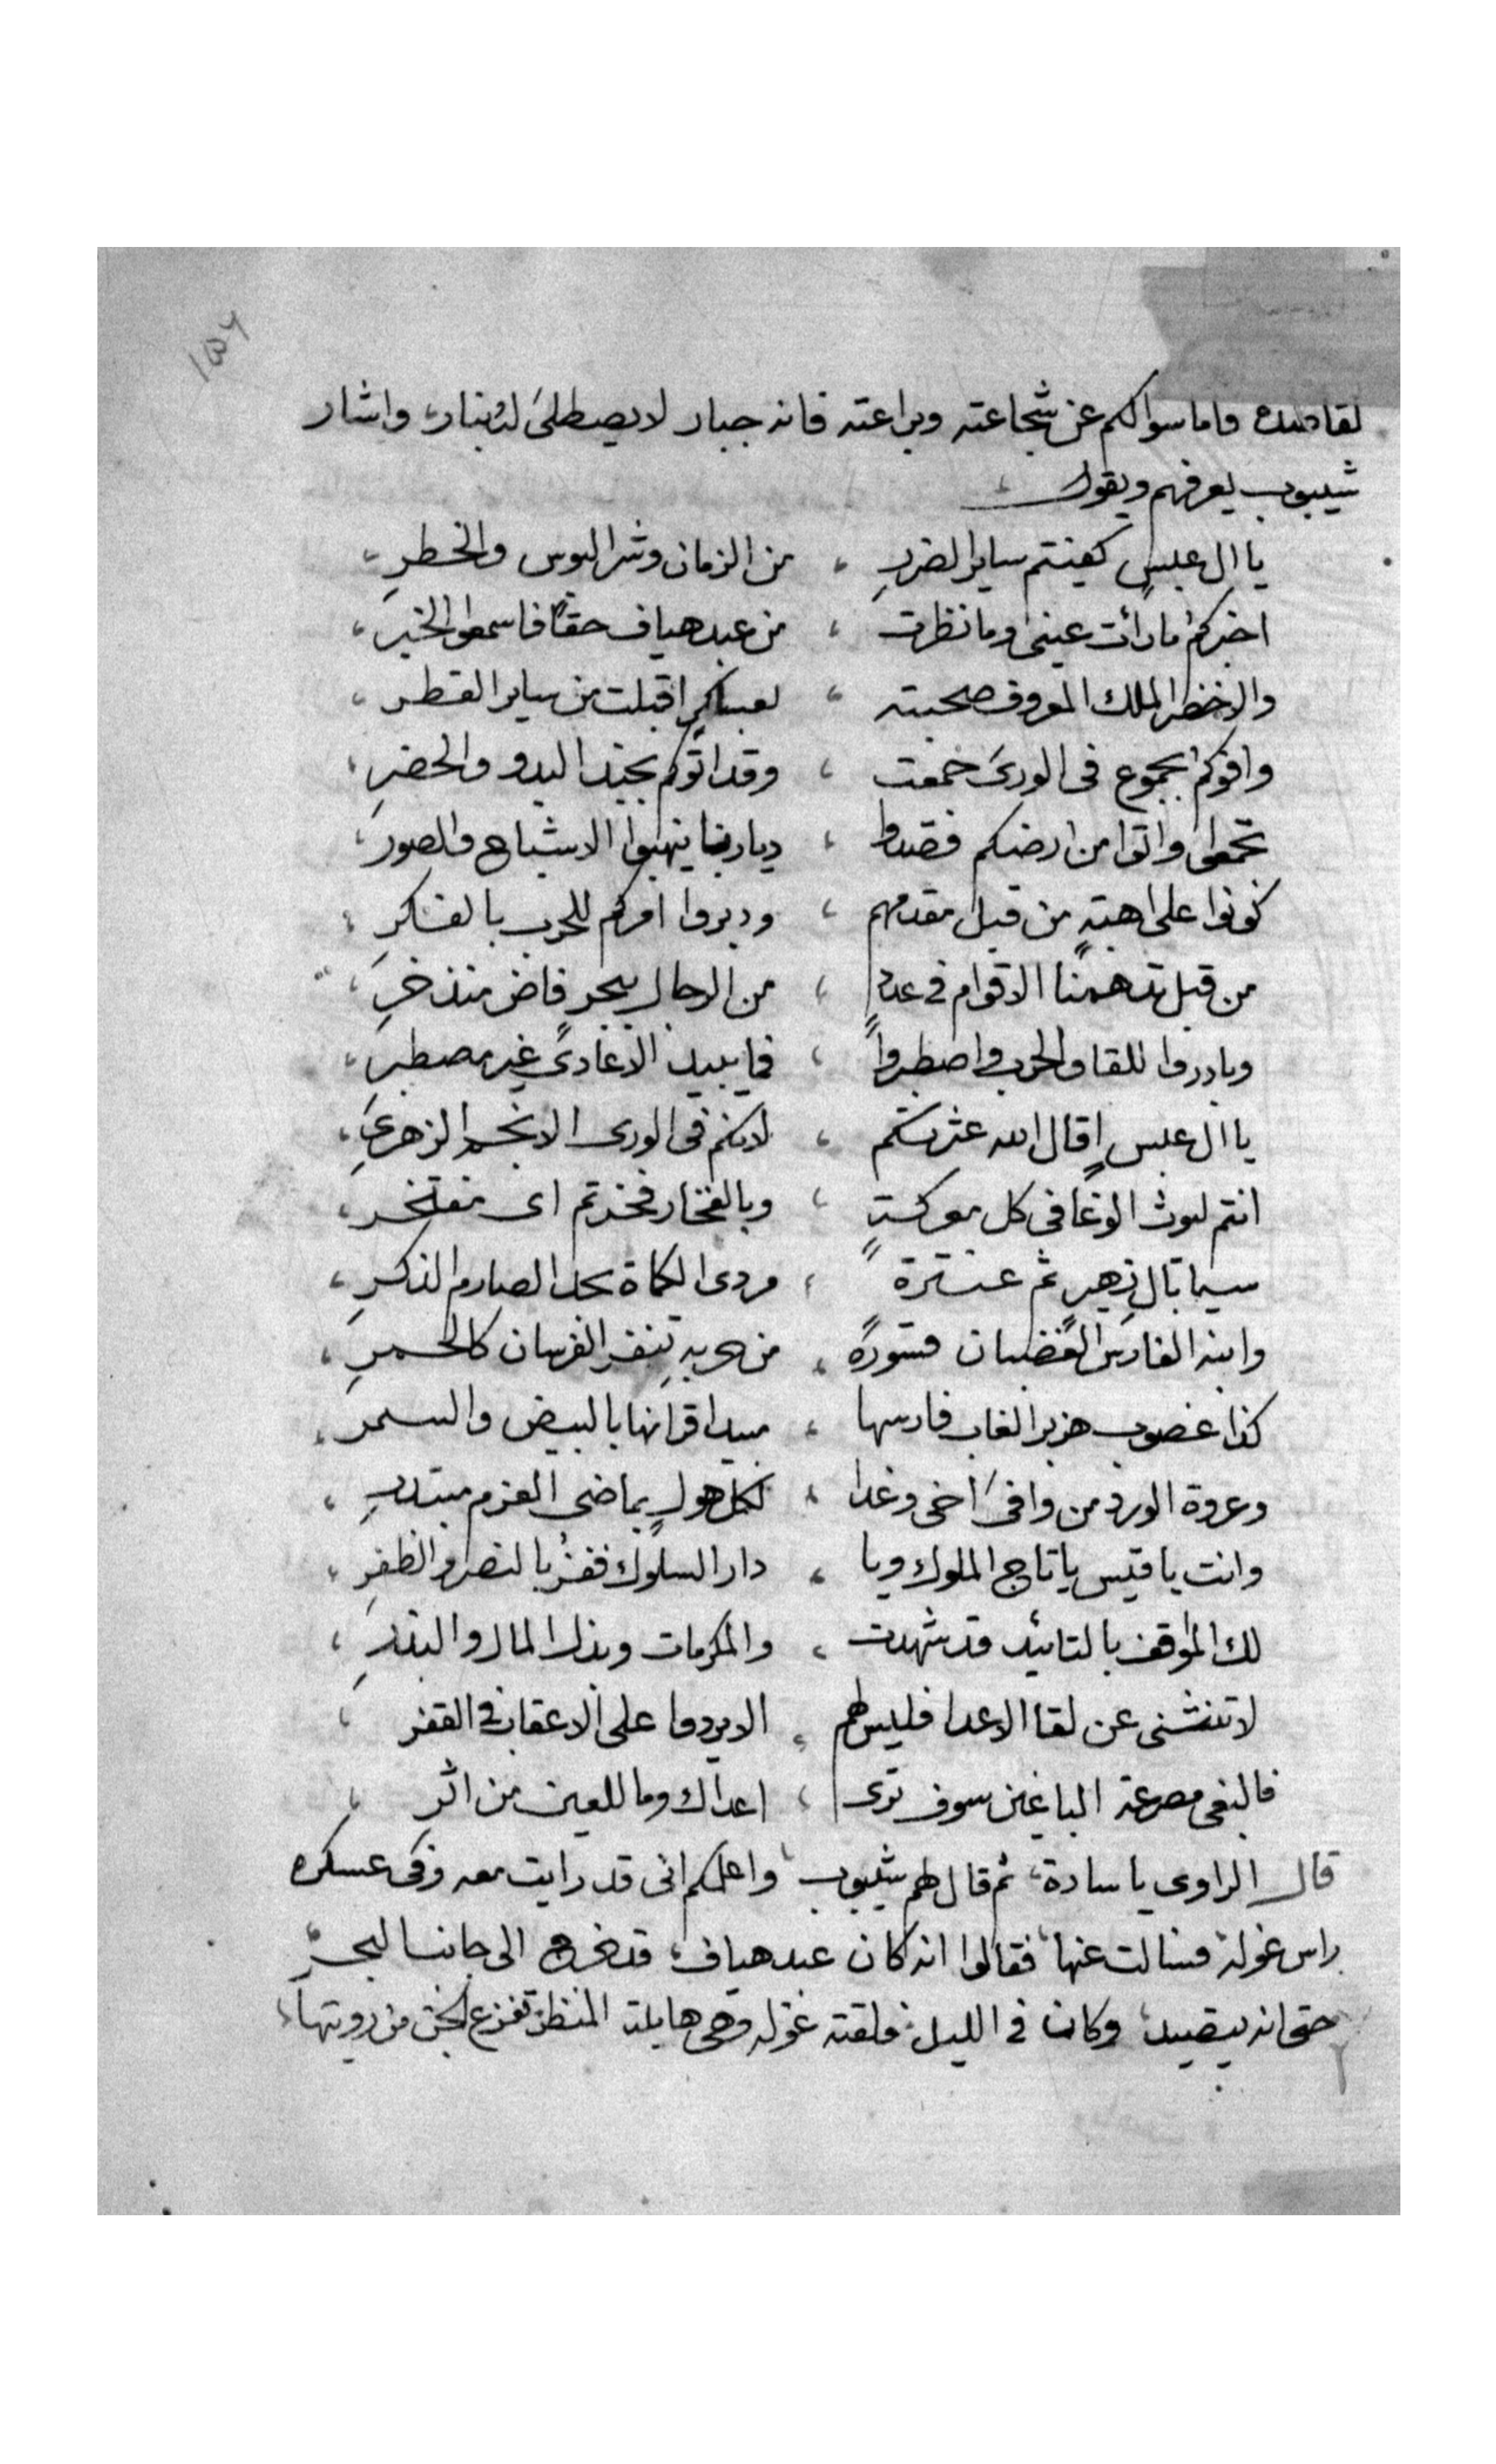 ١٥٦
واما سوالكم عن شجاعته وبراعته فانه جبار لا يصطلى له بنار، واشار
شيبوب يعرفهم ويقول
يا ال عبسٍ كفيتم ساير الضررِ ، من الزمان وشر البوس والخطرِ ،
اخبركم ما رأت عينى وما نظرت ، من عبد هياف حقاً فاسمعوا الخبر ،
والاخضر الملك المعروف صحبته ، لعساكرٍ اقبلت من ساير القطر ،
وافوكم بجموع فى الورى جمعت ، وقد اتوكم بجند البدو والحضرِ ،
تجمعوا واتوا من ارضكم فقصدوا ، ديارنا ينهبوا الاشباح والصور ،
كونوا على اهبةٍ من قبل مقدمهم ، ودبروا امركم للحرب بالفكرِ ،
من قبل تدهمنا الاقوام فى عددٍ ، من الرجال ببحرٍ فاض منذخرِ ،
وبادروا للقا والحرب واصطبروا ، فما يبيد الاعادى غير مصطبر ،
يا ال عبسٍ اقال الله عثرتكم ، لانكم فى الورى الانجم الزهرى ،
انتم ليوث الوغا فى كل معركةٍ ، وبالفخار فخرتم اى مفتخر ،
سيما بال زهيرٍ ثم عنترة ، مردى الكماة بحد الصارم الذكرِ ،
وابنه الفارس الغضبان قسورة ، من حربه تنفر الفرسان كالحمرِ ،
كذا غصوب هزبر الغاب فارسها ، مبيد اقرانها بالبيض والسمر ،
وعروة الورد من وافى اخى وغدا ، لكل هولٍ بماضى العزم مبتدرِ ،
وانت يا قيس يا تاج الملوك ويا ، دار السلوك ففز بالنصر والظفرِ ،
لك المواقف بالتائيد قد شهدت ، والمكرمات وبذل المال والبدرِ ،
لا تنثنى عن لقا الاعدا فليس لهم ، الا يردوا على الاعقاب فى القفر ،
فالبغى مصرعة الباغين سوف ترى ، اعداك وما للعين من اثرِ ،
قال الراوى يا سادة، ثم قال لهم شيبوب، واعلمكم انى قد رايت معه وفى عسكره
راس غولة فسالت عنها، فقالوا انه كان عبد هياف، قد خرج الى جانب البحر
حتى انه يتصيد، وكان فى الليل، فلقته غوله وهى هايلة المنظر تفزع الجن من رويتها،